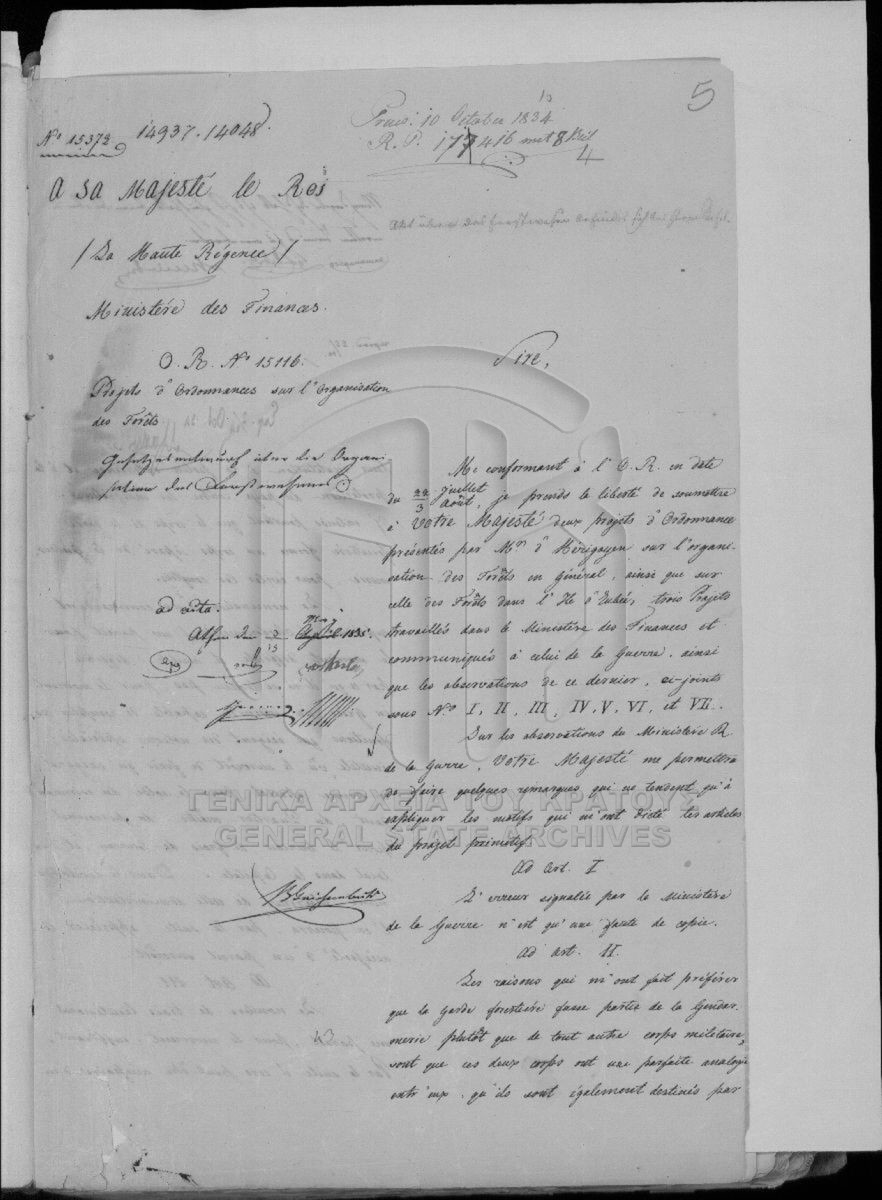 5
No 15372 14937. 14048.
Praes. 10 October 1834.
R. P. 17416 mit 8 Beil
4
A SA Majesté le Roi
/ La Haute Régence /
Ministère des Finances.
O. R. No 15116.
Projets d'Ordonnances sur l'Organisation
des Forêts
Gesetzesentwurf über die Organi-
sation des Forstwesens
ad acta.
Athen den 1835.
Sire,
Me conformant à l'O. R. en date
du 22 juillet
3 Août, je prends la liberté de soumettre
à Votre Majesté deux projets d'Ordonnance
présentés par Mr. d'Hérigoyen sur l'organi-
sation des Forêts en général, ainsi que sur
celle des Forêts dans l'Ile d'Eubée, trois Projets
travaillés dans le Ministère des Finances et
communiqués à celui de la Guerre, ainsi
que les observations de ce dernier, ci-joints
sous No. I, II, III, IV, V, VI, et VII.
Sur les observations du Ministère R.
de la Guerre, Votre Majesté me permettra
de faire quelques remarques qui ne tendent qu'à
expliquer les motifs qui m'ont dicté les articles
du projet primitif.
Ad art. I
L'erreur signalée par le Ministère
de la Guerre n'est qu'une faute de copie.
Ad art. II.
Les raisons qui m'ont fait préférer
que la garde forestière fasse partie de la Gendar-
merie plutôt que de tout autre corps militaire,
sont que ces deux corps ont une parfaite analogie
entr'eux, qu'ils sont également destinés par
ΓΕΝΙΚΑ ΑΡΧΕΙΑ ΤΟΥ ΚΡΑΤΟΥΣ
GENERAL STATE ARCHIVES